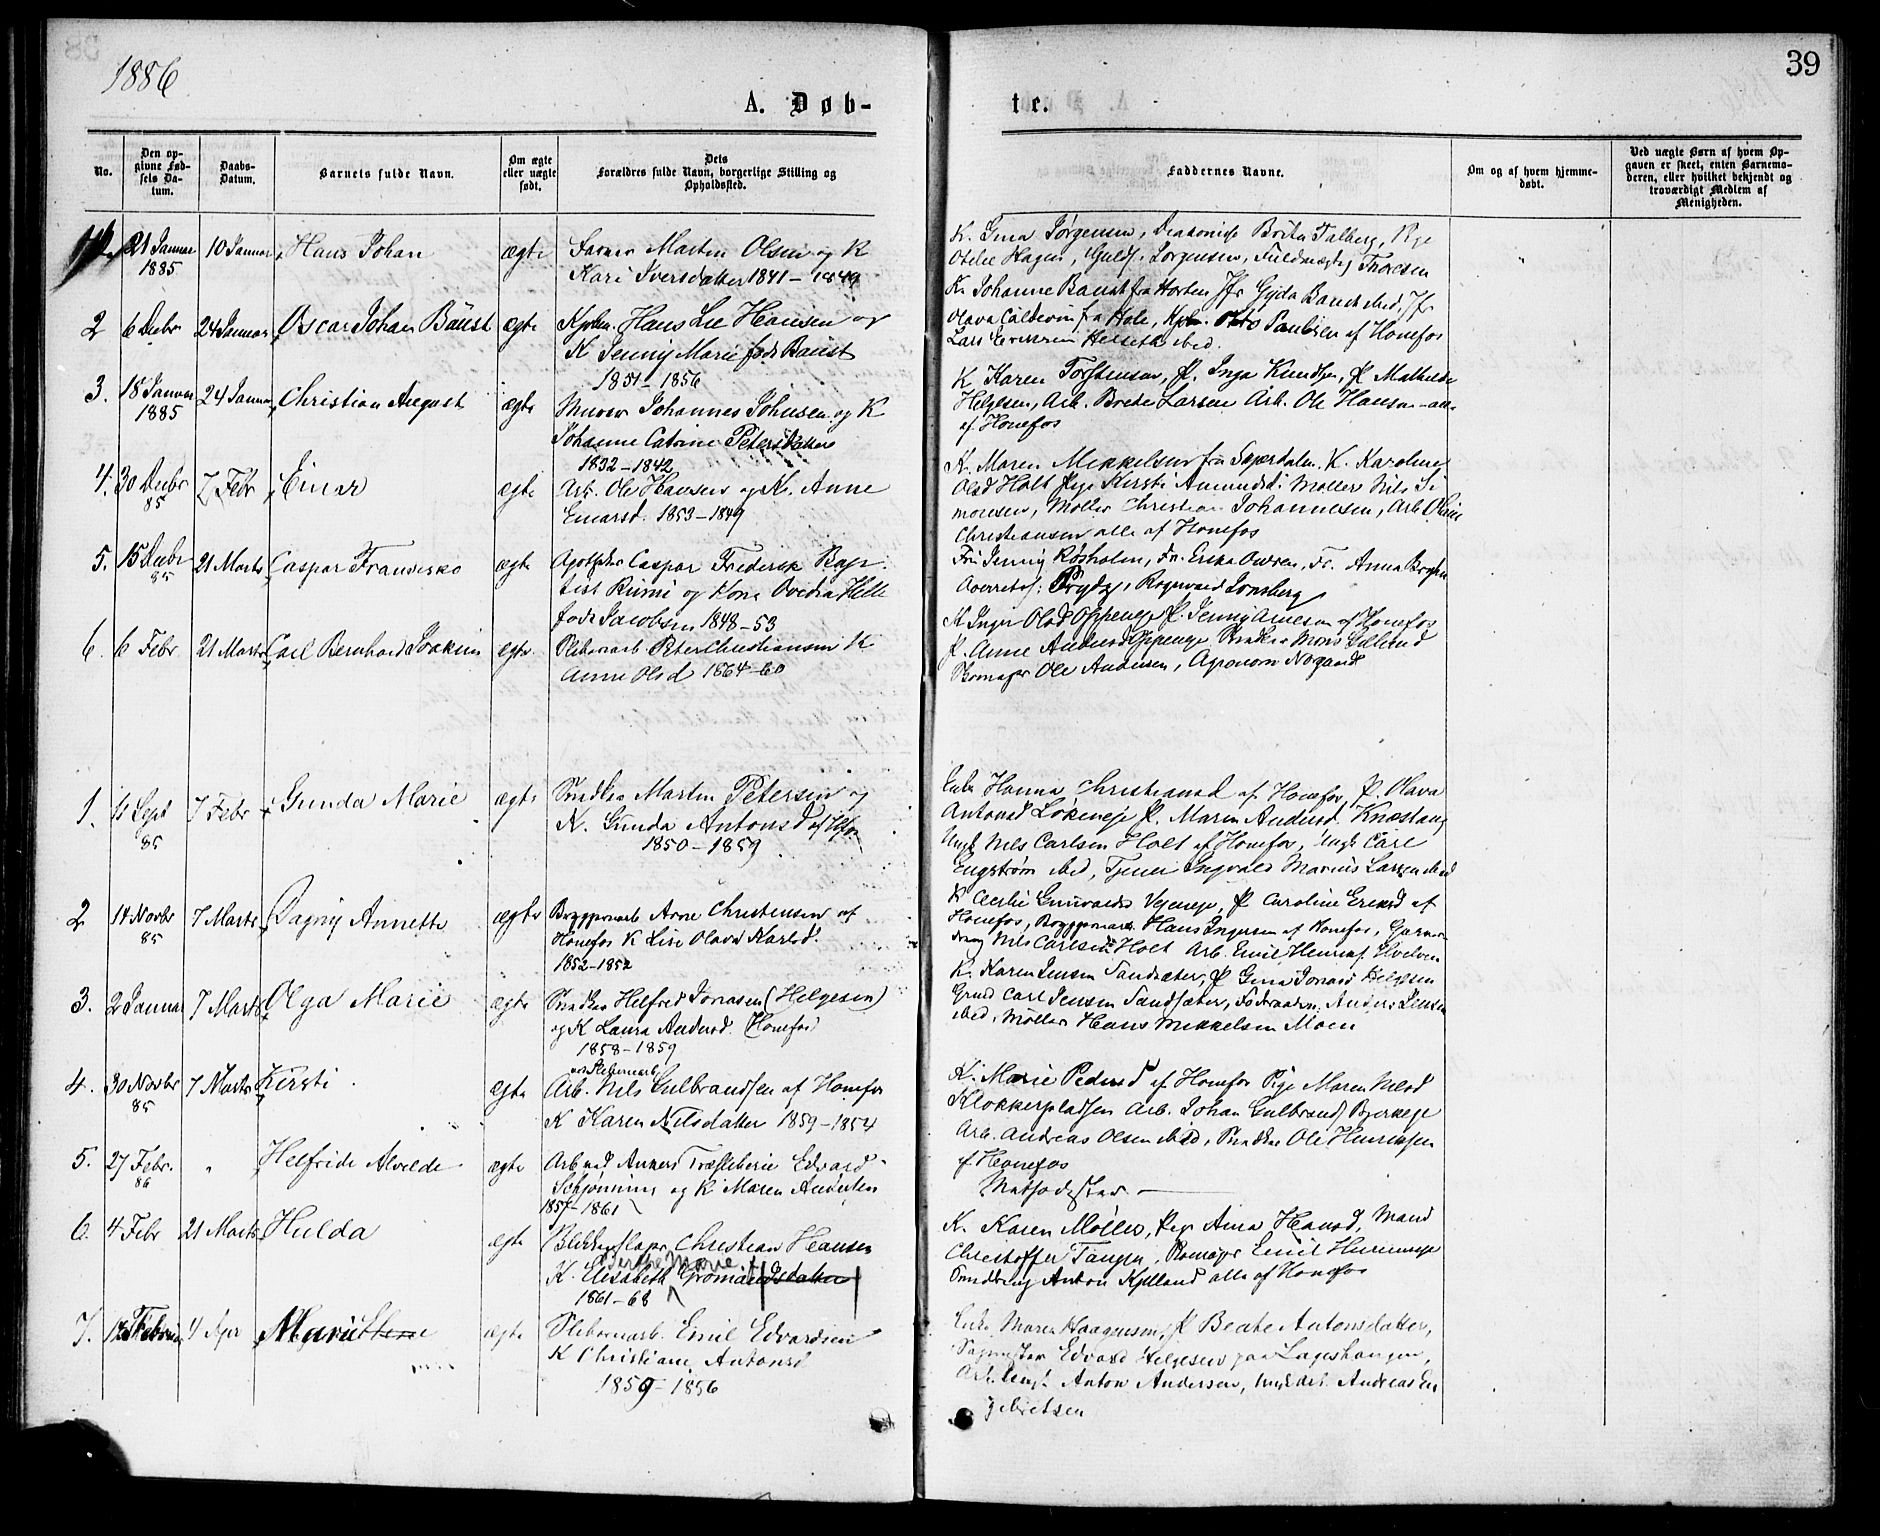 1886
39
A. Døb-
te.
No.
Den op-
givne Fød-
sels Da-
tum.
Daabs-
Datum.
Barnets fulde Navn.
Om ægte
eller uægte
født.
Dets
Forældres fulde Navn, borgerlige Stilling og
Opholdssted.
Faddernes Navne.
Om og af hvem hjemme-
døbt.
Ved uægte Børn af hvem Op-
gaven er skeet, enten Barnemo-
deren, eller hvilket bekjendt og
troværdigt Medlem af
Menigheden.
21 Januar
1885
10 Januar
Hans Johan
ægte
Marten Olsen og K
Kari Iversdatter 1841 – 1849
K. Gina Jørgensen, Diakonisse Brita Talberg, Pige
Otelie Hagen, Guldsm. Jørgensen, Fuldmægtig Thoresen
2
6 Decbr
24 Januar
Oscar Johan Baust
ægte
Kjøbm. Hans Lie Hansen og
K Jenny Marie født Baust
1851 – 1856
K. Johanne Baust fra Horten Jfr Gyda Baust ibid, Jfr
Olava fra Hole, Kjøbm. Otto Paulsen af Hønefos
Lars Eriksen Helseth ibid.
3.
18 Januar
1885
24 Januar
Christian August
ægte
Murer Johannes Johnsen og K
Johanne Catrine Petersdatter
1832 – 1842
K Karen Torstensen, P. Inga Knudsen, P Mathilde
Helgesen, Arb. Brede Larsen Arb. Ole Hansen – alle
af Hønefos
4.
30 Decbr
85
7 Febr
Einar
ægte
Arb. Ole Hansen og K. Anne
Einarsd. 1853 – 1849
K. Maren Mikkelsen fra K. Karoline
Olsd Holt Pige Kirsti Amundsd: Møller Nils Si
monsen, Møller Christian Johannesen, Arb
Christiansen alle af Hønefos
5.
15 Decbr
85
21 Marts
Caspar Francisko
ægte
Caspar Frederik Bap-
tist og Kone Ovedia Helle
født Jacobsen 1848 – 53
Fru Jenny Røsholm, Fr. Erika Owren, Fr. Anna
6.
6 Febr
21 Marts
Carl Bernhard Joakim
ægte
Sliberiarb Peter Christiansen K
Anne Olsd 1864 – 60
K Inger Olsd Oppenge P. Jenny Arnesen af Hønefos
P. Anne Andersd Oppenge Snedker Mons
Skomager Ole Andersen, Agronom
1.
11 Sept
85
7 Febr
Gunda Marie
ægte
Snedker Martin Petersen og
K. Gunda Antonsd af Hfos
1850 – 1859
Enke Hanna Christiansd af Hønefos, P. Olava
Antonsd Løkeneje P. Maren Andersd. Knæstang
Ungk Nils Carlsen Holt af Hønefos, Ungk Carl
Engstrøm ibid, Tjener Ingvald Marius Larsen ibid
2
14 Novbr
85
7 Marts
Dagny Annette
ægte
Bryggeriarb Arne Christensen af
Hønefos K Lise Olava Karlsd.
1852–1852
K Cecilie Gunvorsd. P Caroline Eriksd af
Hønefos, Bryggeriarb Hans Ingersen af Hønefos, Garver-
dreng Nils Carlsen Holt Arb. Emil Henriks. Hvelven
3.
2 Januar
7 Marts
Olga Marie
ægte
Snedker Helfred Jonasen (Helgesen)
og K Laura Andersd. (Hønefos)
1858 – 1859
K. Karen Jensen Tandsæter, P Gina Jonasd Helgesen
Grd Carl Jensen Tandsæter, Anders Jensen
ibid. Møller Hans Mikkelsen Moen
4.
30 Novbr
85
7 Marts
Kirsti
ægte
ved Sliberiarb
Arb. Nils Gulbrandsen af Hønefos
K Karen Nilsdatter 1859 – 1854
K. Marie Pedersd af Hønefos Pige Maren Nilsd
Klokkerpladsen Arb. Johan Gulbrands Bjerkeje
Arb. Andreas Olsen ibid, Snedker Ole Henriksen
af Hønefos
5.
27 Febr.
86
"
Helfride Alvilde
ægte
Arb ved Ankers Træsliberie Edvard
Schjønning og K Maren Andersen
1857 – 1861
Methodister. –
6.
4 Febr
21 Marts
Hulda
ægte
Blikkenslager Christian Hansen
Berthe Marie
K. Elisabeth Gromandsdatter
1861 – 68
K. Karen Møller, Pige Anna Hansd, Maud
Christoffer Tangen, Skomager Emil
Smeddreng Anton Kjelland alle af Hønefos
7.
Februar
4 Apr
Marie
ægte
Sliberiarb. Emil Edvardsen
K Christiane Antonsd
1859 – 1856
Enke Maren Haagensen, P Beate Antonsdatter,
Sagmester Edvard Helgesen paa Lageshaugen,
Arb. Ungk Anton Andersen, Ungk. Andreas En
gebretsen